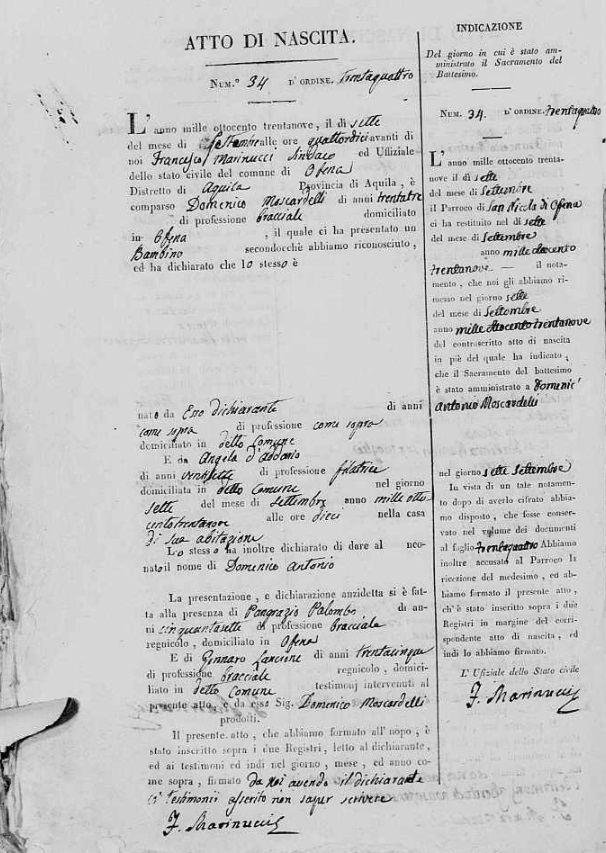 ATTO DI NASCITA.
NUM.º 34 D'ORDINE. trentaquattro
L'anno mille ottocento trentanove, il dì sette
del mese di Settembre alle ore quattordici avanti di
noi Francesco Marinucci Sindaco ed Uffiziale
dello stato civile del comune di Ofena
Distretto di Aquila Provincia di Aquila, è
comparso Domenico Moscardelli di anni trentatre
di professione bracciale domiciliato
in Ofena, il quale ci ha presentato un
Bambino secondocchè abbiamo riconosciuto,
ed ha dichiarato che lo stesso è
nato da Esso dichiarante di anni
come sopra di professione come sopra
domiciliato in detto Comune
E da Angela d'Addario
di anni ventisette di professione filatrice
domiciliata in detto Comune nel giorno
sette del mese di Settembre anno mille otto
cento trentanove alle ore dieci nella casa
di sua abitazione
Lo stesso ha inoltre dichiarato di dare al neo-
nato il nome di Domenico Antonio
La presentazione, e dichiarazione anzidetta si è fat-
ta alla presenza di Pangrazio Palombo di an-
ni cinquantasette di professione bracciale
regnicolo, domiciliato in Ofena
E di Gennaro Lancione di anni trentacinque
di professione bracciale regnicolo, domici-
liato in detto Comune testimonj intervenuti al
presente atto, e da esso Sig. Domenico Moscardelli
prodotti.
Il presente atto, che abbiamo formato all'uopo, è
stato inscritto sopra i due Registri, letto al dichiarante,
ed ai testimoni ed indi nel giorno, mese, ed anno co-
me sopra, firmato da noi avendo il dichiarante
e i testimonii asserito non saper scrivere
F. Marinucci
INDICAZIONE
Del giorno in cui è stato am-
ministrato il Sacramento del
Battesimo.
NUM. 34. D'ORDINE. trentaquattro
L'anno mille ottocento trenta-
nove il dì sette
del mese di Settembre
il Parroco di San Nicola di Ofena
ci ha restituito nel dì sette
del mese di Settembre
anno mille ottocento
trentanove — il nota-
mento, che noi gli abbiamo ri-
messo nel giorno sette
del mese di Settembre
anno mille ottocento trentanove
del controscritto atto di nascita
in piè del quale ha indicato,
che il Sacramento del battesimo
è stato amministrato a Domenic'
Antonio Moscardelli
nel giorno sette Settembre
In vista di un tale notamento
dopo di averlo cifrato abbia-
mo disposto, che fosse conser-
vato nel volume dei documenti
al foglio trentaquattro Abbiamo
inoltre accusato al Parroco la
ricezione del medesimo, ed ab-
biamo formato il presente atto,
ch'è stato inscritto sopra i due
Registri in margine del corri-
spondente atto di nascita, ed
indi lo abbiamo firmato.
L'Ufiziale dello Stato civile
F. Marinucci